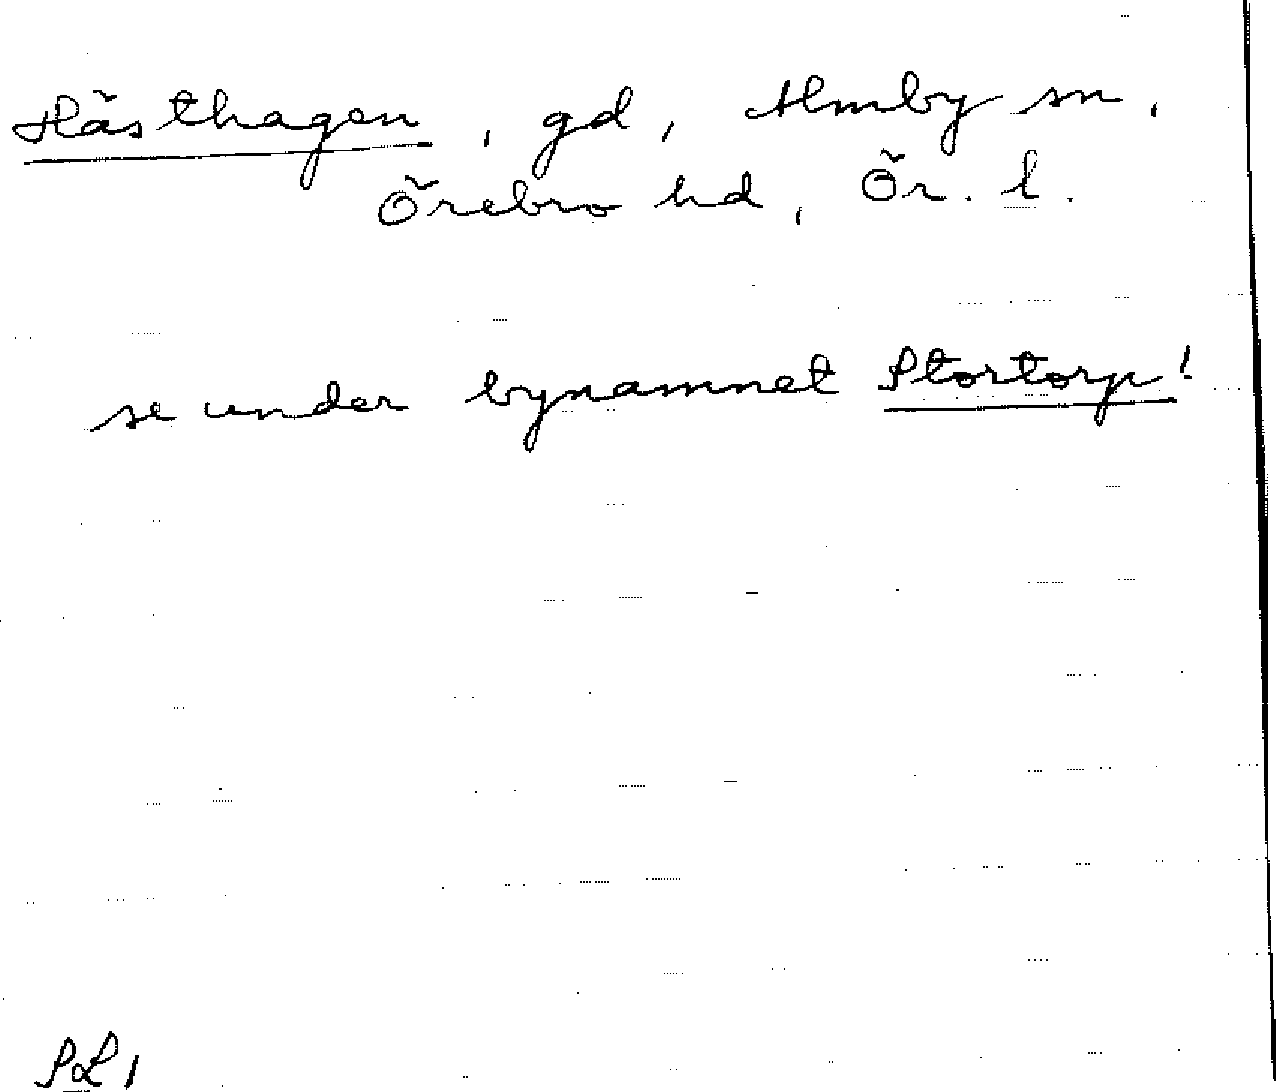 Hästhagen, gd, Almby sn,
Örebro hd, Ör. l.
se under bynamnet Stortorp!